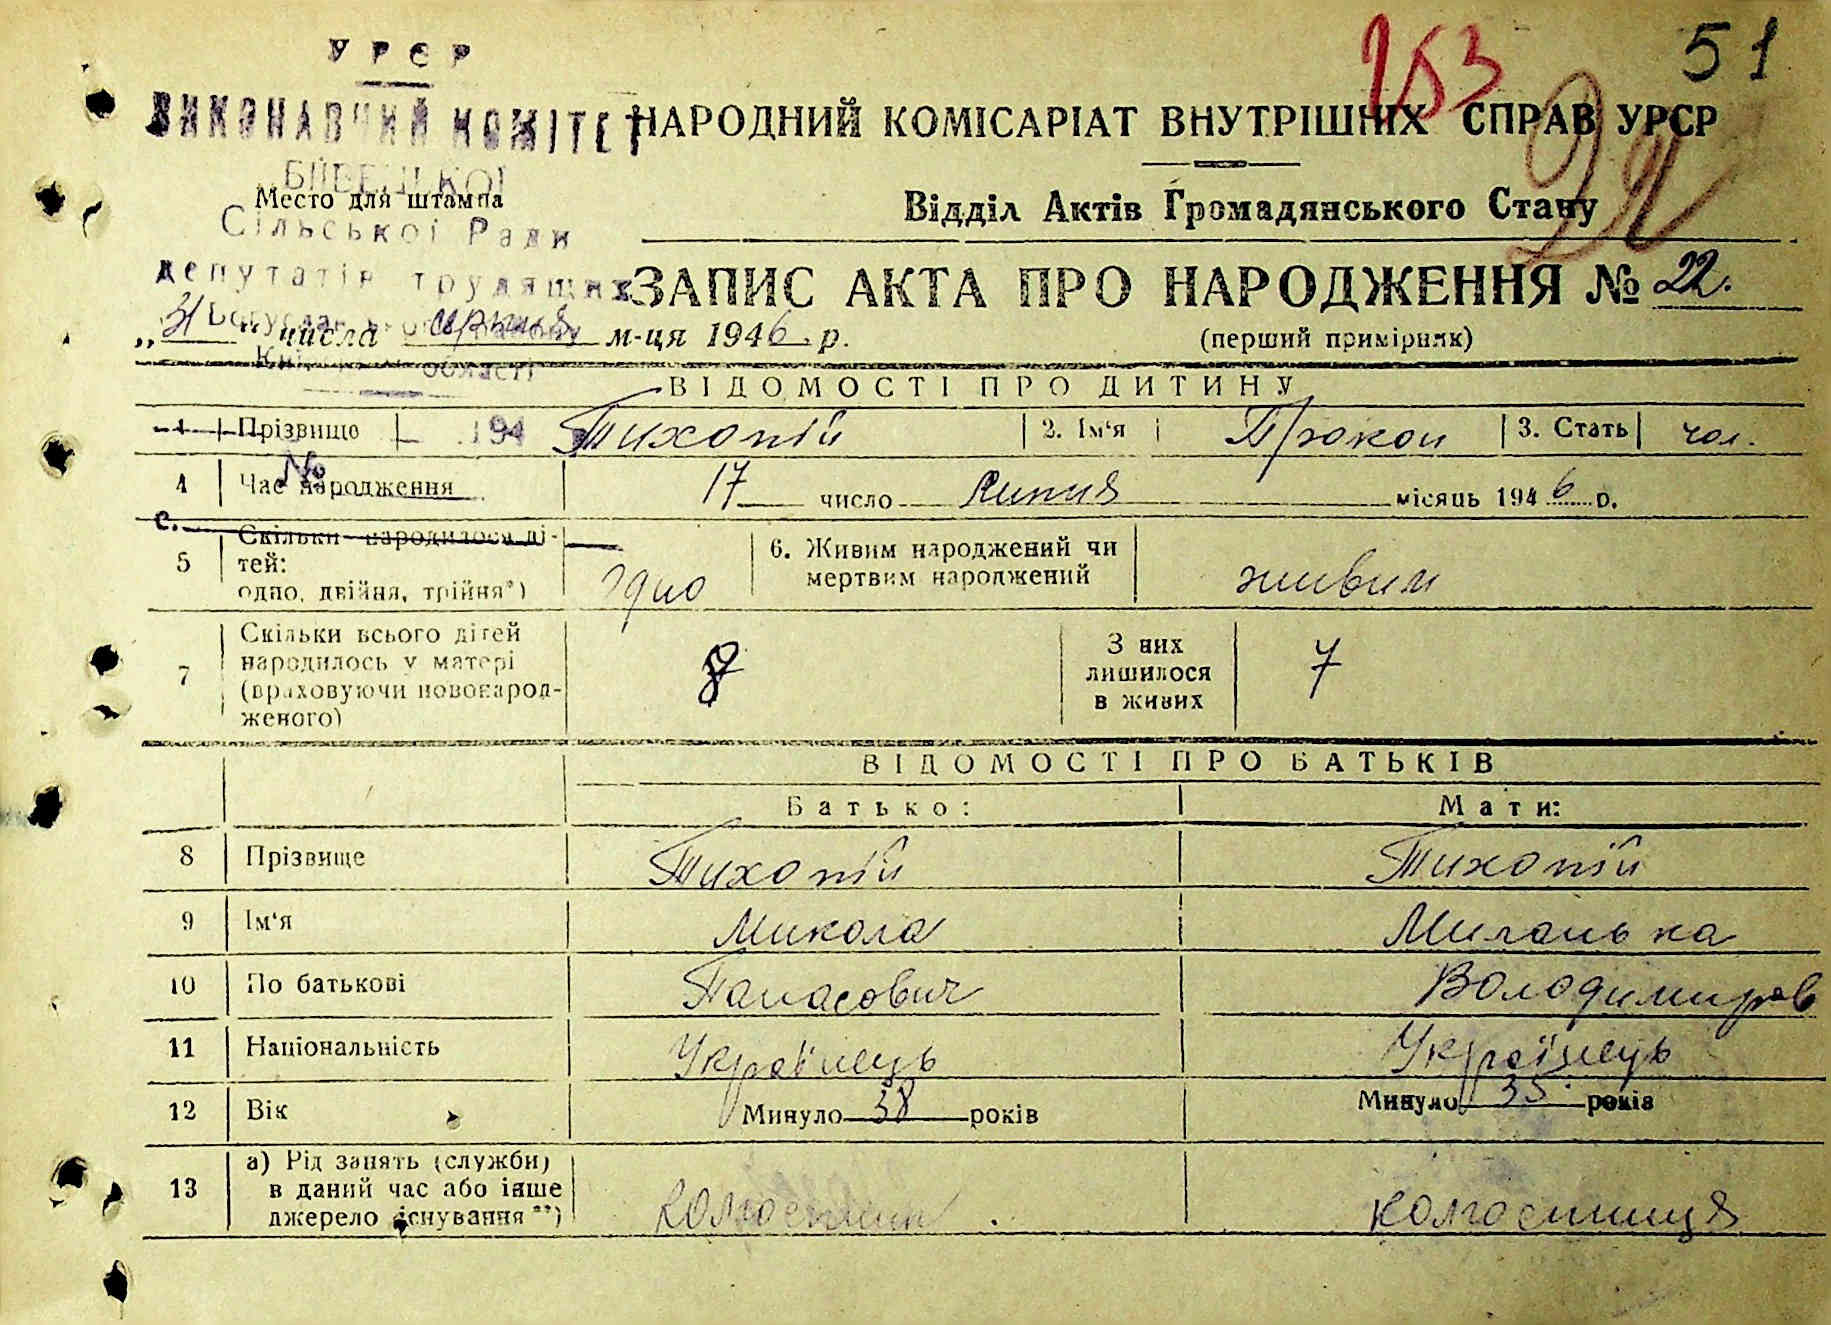 УРСР
253 51
ВИКОНАВЧИЙ КОМІТЕТ
НАРОДНИЙ КОМІСАРІАТ ВНУТРІШНІХ СПРАВ УРСР
22
Место для штампа
Відділ Актів Громадянського Стану
Сільської Ради
депутатів трудящих
ЗАПИС АКТА ПРО НАРОДЖЕННЯ № 22.
„31" числа м-ця 1946. р.
(перший примірник)
області
ВІДОМОСТІ ПРО ДИТИНУ
1 Прізвище 194 Тихопій 2. Ім'я Прокоп 3. Стать чол.
№
4 Час народження 17 число Липня місяць 1946 р.
с.
5 Скільки народилося дітей: одно, двійня, трійня*) одно 6. Живим народжений чи мертвим народжений живим
7 Скільки всього дітей народилось у матері (враховуючи новонародженого) 8 З них лишилося в живих 7
ВІДОМОСТІ ПРО БАТЬКІВ
Батько: Мати:
8 Прізвище Тихопій Тихопій
9 Ім'я Микола Миланька
10 По батькові Панасович Володимиров
11 Національність Українець Українець
12 Вік Минуло 38 років Минуло 35 років
13 а) Рід занять (служби) в даний час або інше джерело існування**) колгоспник. колгоспниця